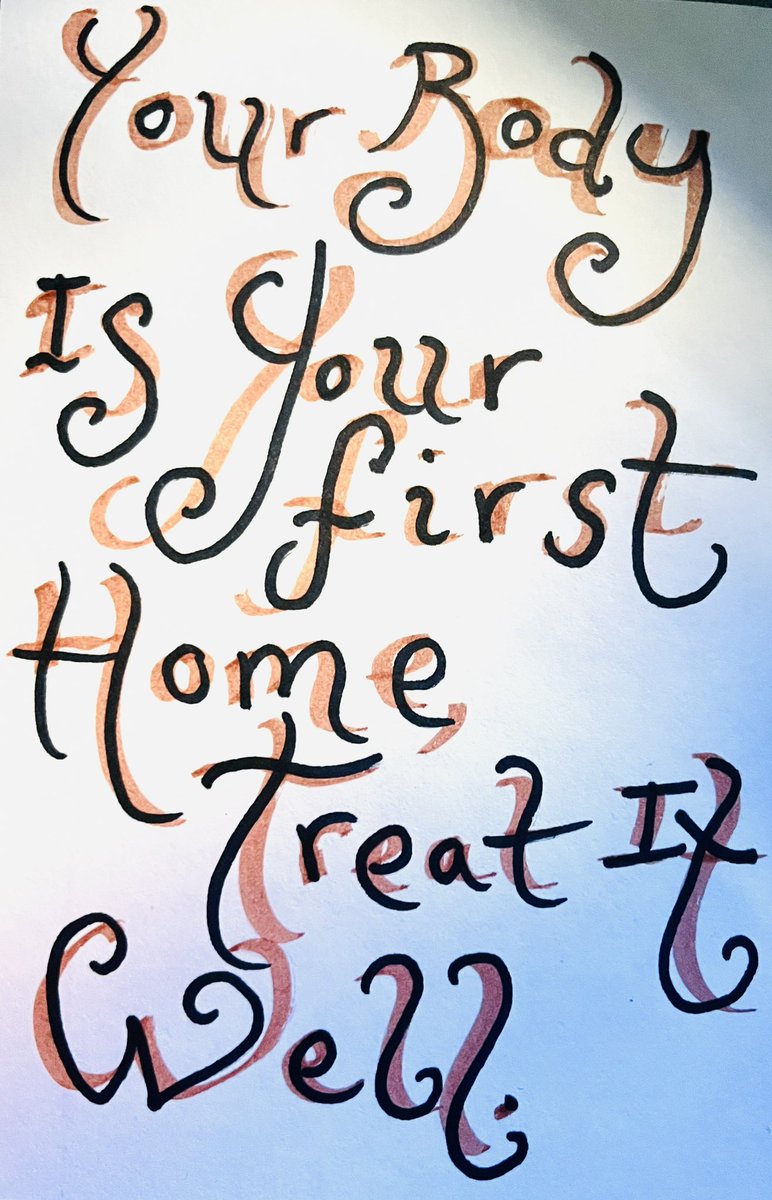 Your Body
Is Your
first
Home,
Treat It
Well.